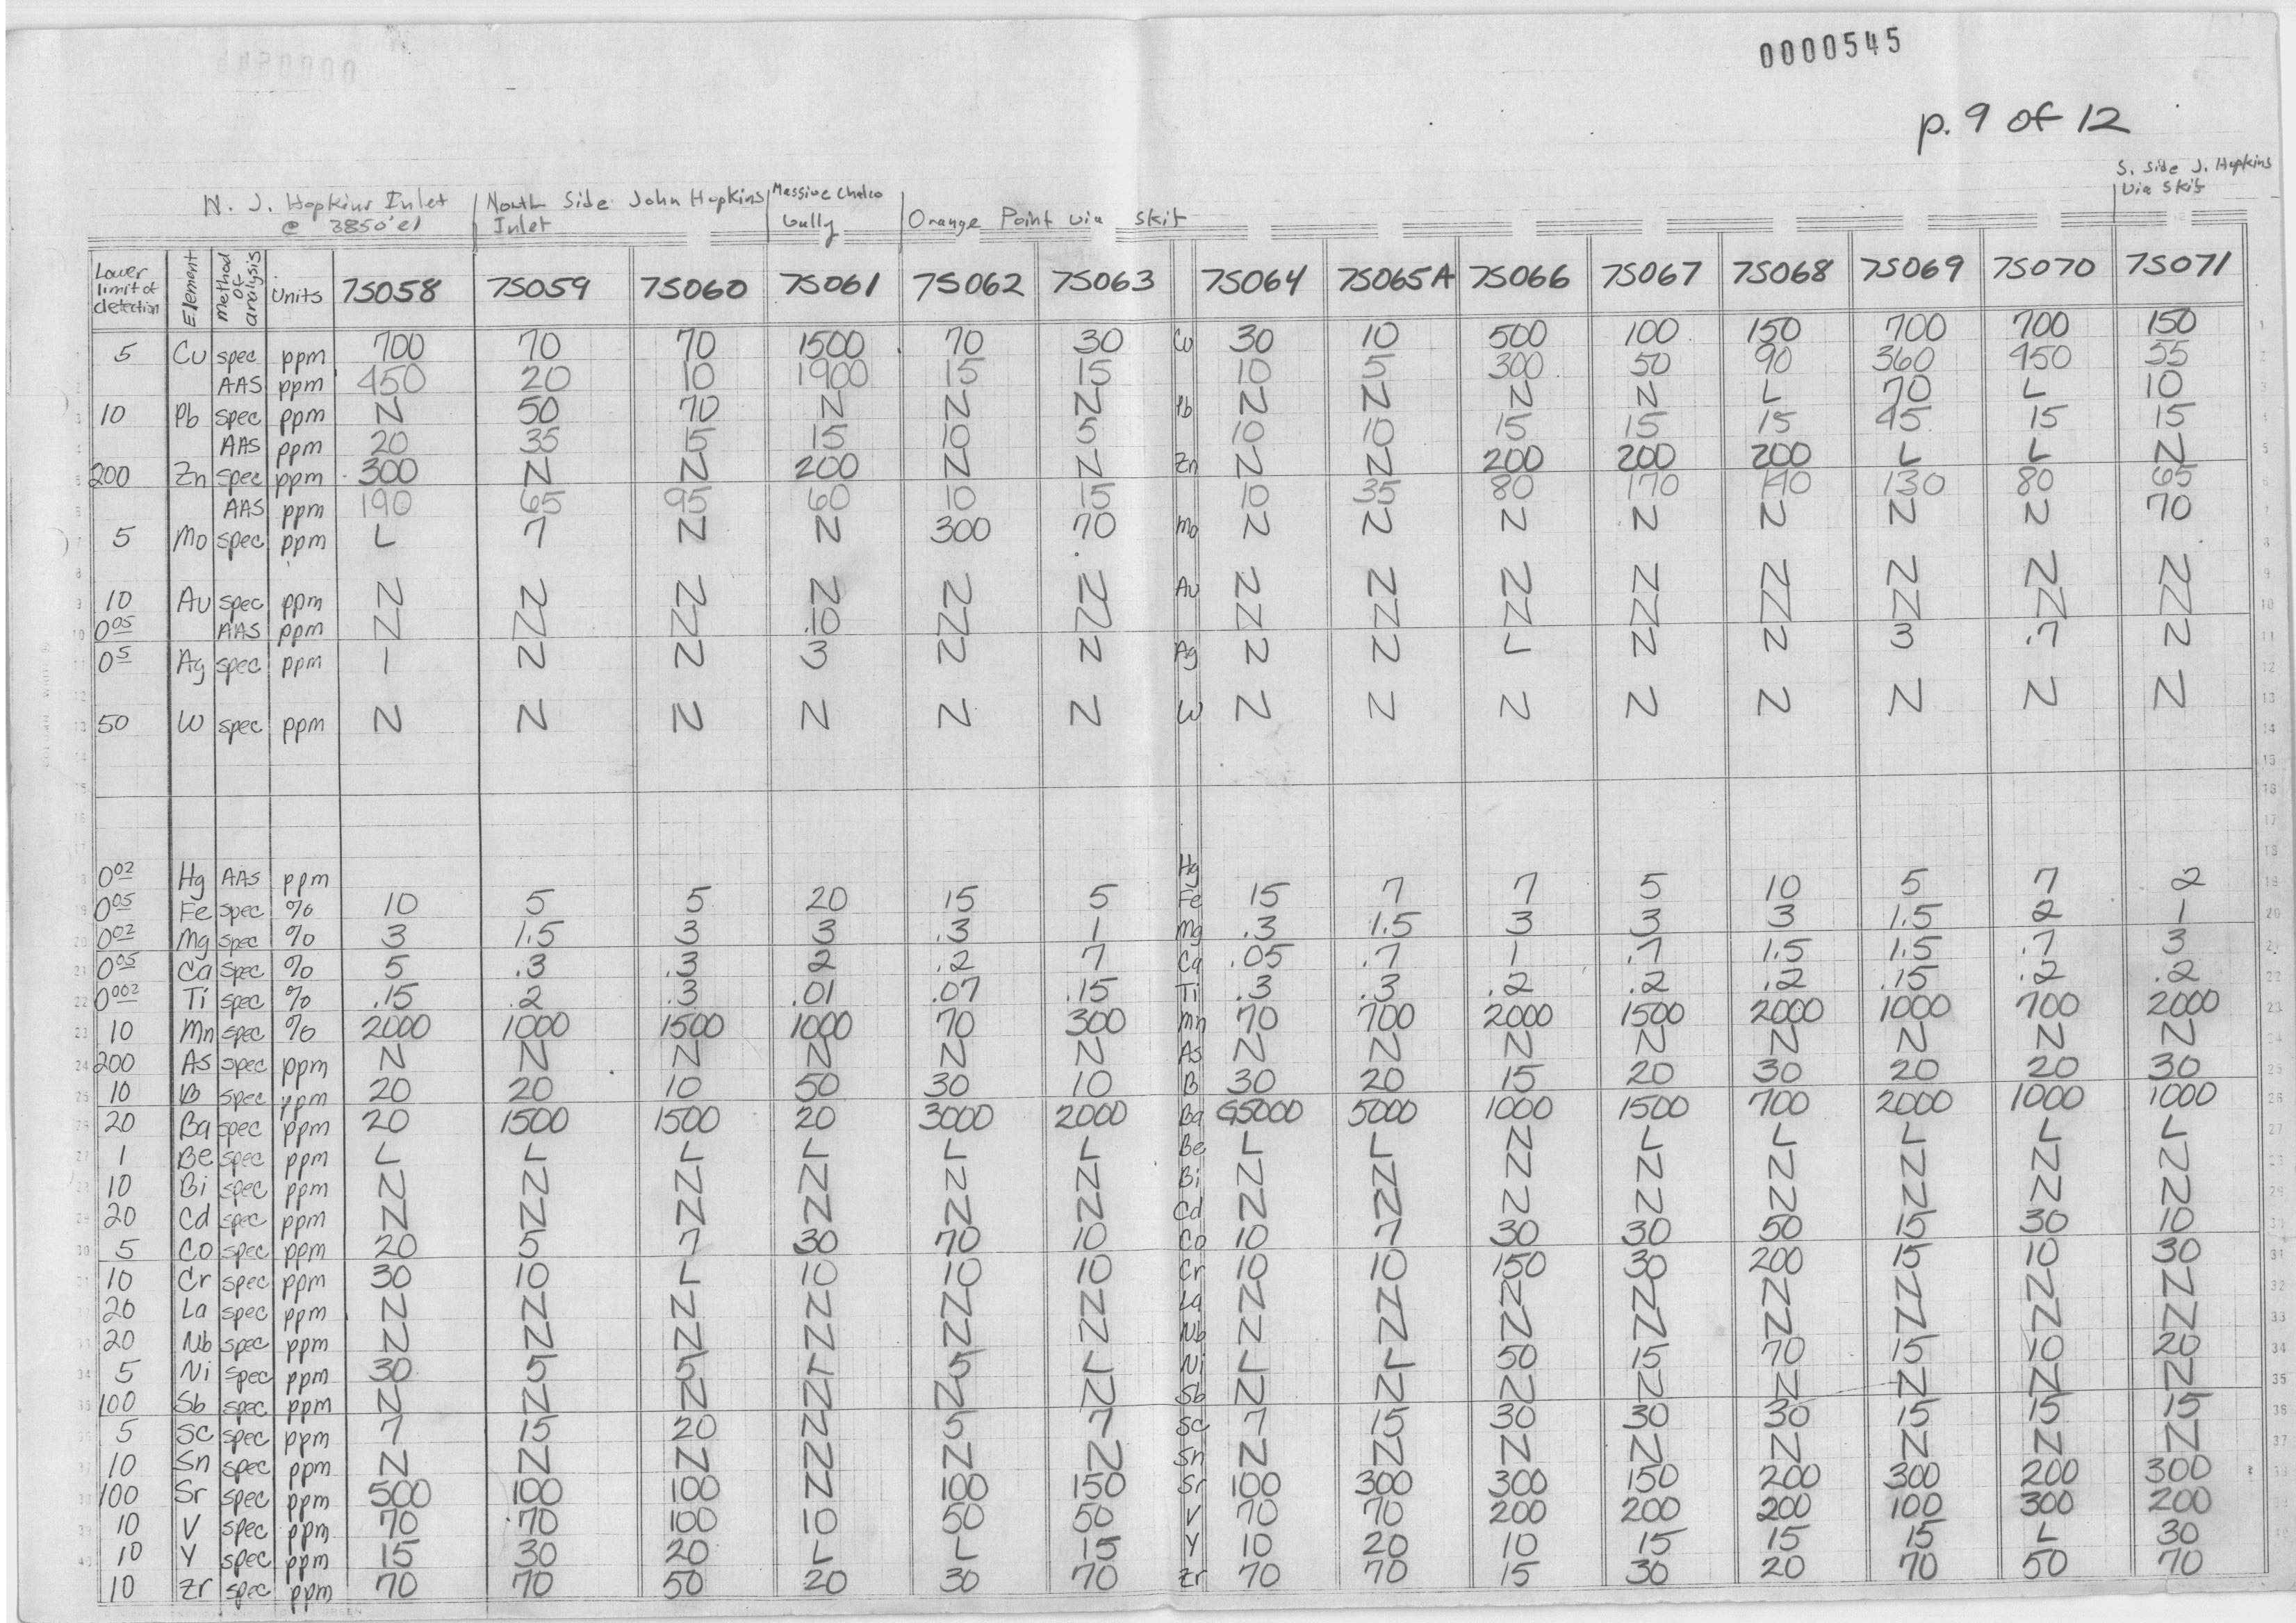 0000545
p. 9 of 12
S. Side J. Hopkins
Via Skif
N. J. Hopkins Inlet North Side John Hopkins Massive Chalco
@ 3850'el Inlet Gully Orange Point via Skif
Lower limit of detection Element Method of analysis Units 7S058 7S059 7S060 7S061 7S062 7S063 7S064 7S065A 7S066 7S067 7S068 7S069 7S070 7S071
5 Cu spec ppm 700 70 70 1500 70 30 Cu 30 10 500 100 150 700 700 150
AAS ppm 450 20 10 1900 15 15 10 5 300 50 90 360 450 55
10 Pb spec ppm N 50 70 N N N Pb N N N N L 70 L 10
AAS ppm 20 35 15 15 10 5 10 10 15 15 15 45 15 15
200 Zn spec ppm 300 N N 200 N N Zn N N 200 200 200 L L N
AAS ppm 190 65 95 60 10 15 10 35 80 170 140 130 80 65
5 Mo spec ppm L 7 N N 300 70 Mo N N N N N N N 70
10 Au spec ppm N N N N N N Au N N N N N N N N
0.05 AAS ppm N N N .10 N N N N N N N N N N
0.5 Ag spec ppm 1 N N 3 N N Ag N N L N N 3 .7 N
50 W spec ppm N N N N N N W N N N N N N N N
0.02 Hg AAS ppm Hg
0.05 Fe spec % 10 5 5 20 15 5 Fe 15 7 7 5 10 5 7 2
0.02 Mg spec % 3 1.5 3 3 .3 1 Mg .3 1.5 3 3 3 1.5 2 1
0.05 Ca spec % 5 .3 .3 2 .2 7 Ca .05 .7 1 .7 1.5 1.5 .7 3
0.002 Ti spec % .15 .2 .3 .01 .07 .15 Ti .3 .3 .2 .2 .2 .15 .2 .2
10 Mn spec % 2000 1000 1500 1000 70 300 Mn 70 700 2000 1500 2000 1000 700 2000
200 As spec ppm N N N N N N As N N N N N N N N
10 B spec ppm 20 20 10 50 30 10 B 30 20 15 20 30 20 20 30
20 Ba spec ppm 20 1500 1500 20 3000 2000 Ba G5000 5000 1000 1500 700 2000 1000 1000
1 Be spec ppm L L L L L L Be L L N L L L L L
10 Bi spec ppm N N N N N N Bi N N N N N N N N
20 Cd spec ppm N N N N N N Cd N N N N N N N N
5 Co spec ppm 20 5 7 30 70 10 Co 10 7 30 30 50 15 30 10
10 Cr spec ppm 30 10 L 10 10 10 Cr 10 10 150 30 200 15 10 30
20 La spec ppm N N N N N N La N N N N N N N N
20 Nb spec ppm N N N N N N Nb N N N N N N N N
5 Ni spec ppm 30 5 5 L 5 L Ni L L 50 15 70 15 10 20
100 Sb spec ppm N N N N N N Sb N N N N N N N N
5 Sc spec ppm 7 15 20 N 5 7 Sc 7 15 30 30 30 15 15 15
10 Sn spec ppm N N N N N N Sn N N N N N N N N
100 Sr spec ppm 500 100 100 N 100 150 Sr 100 300 300 150 200 300 200 300
10 V spec ppm 70 70 100 10 50 50 V 70 70 200 200 200 100 300 200
10 Y spec ppm 15 30 20 L L 15 Y 10 20 10 15 15 15 L 30
10 Zr spec ppm 70 70 50 20 30 70 Zr 70 70 15 30 20 70 50 70